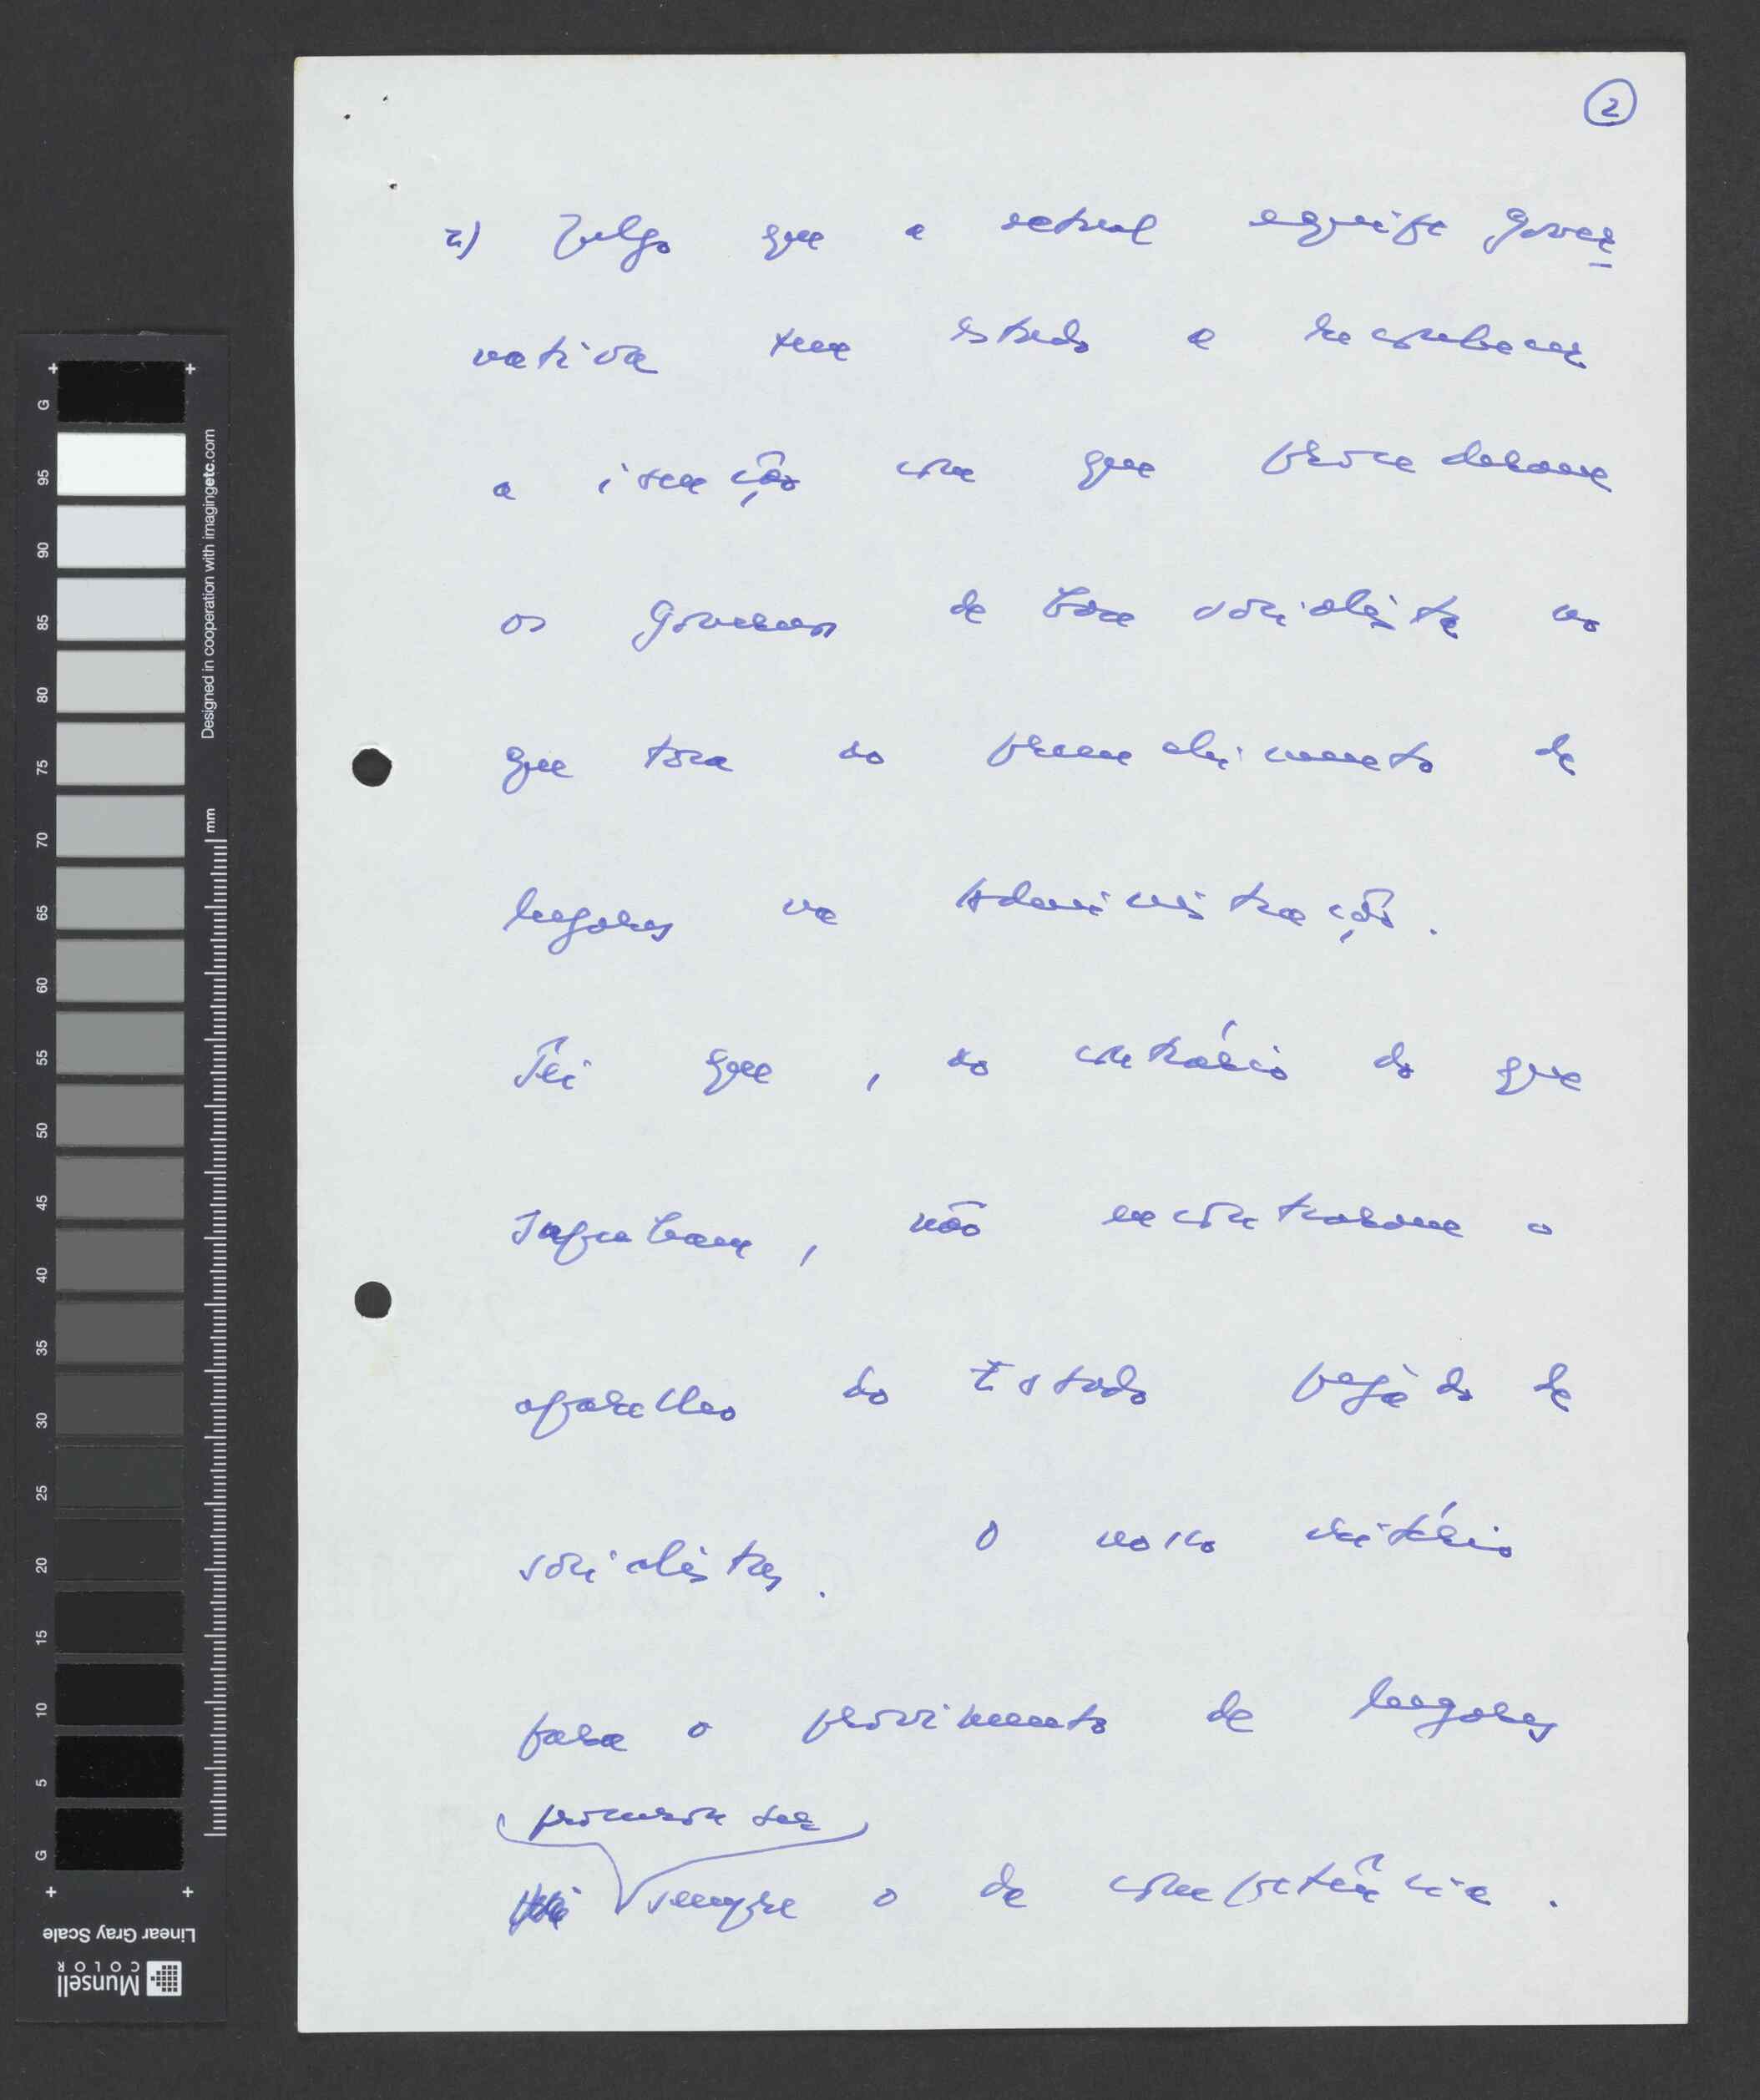 2
2) Julgo que a actual equipe gover
nativa tem estado a reconhecer
a isenção com que procederam
os Governos de base socialista no
que toca ao preenchimento de
lugares na Administração.
Sei que, ao contrário do que
supunham, não encontraram o
aparelho do Estado pejado de
socialistas. O nosso critério
para o provimento de lugares
procurou ser
foi sempre o de competência.
G 95 90 85 80 75 70 65 60 55 50 45 40 35 30 25 20 15 10 5 G
mm
Designed in cooperation with imagingetc.com
Linear Gray Scale
Munsell
COLOR